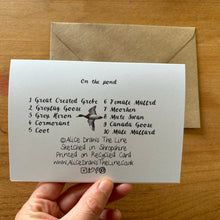 On the pond
1 Great Crested Grebe
2 Greylag Goose
3 Grey Heron
4 Cormorant
5 Coot
6 Female Mallard
7 Moorhen
8 Mute Swan
9 Canada Goose
10 Male Mallard
©Alice Draws The Line
Sketched in Shropshire
Printed on Recycled Card
www.AliceDrawsTheLine.co.uk